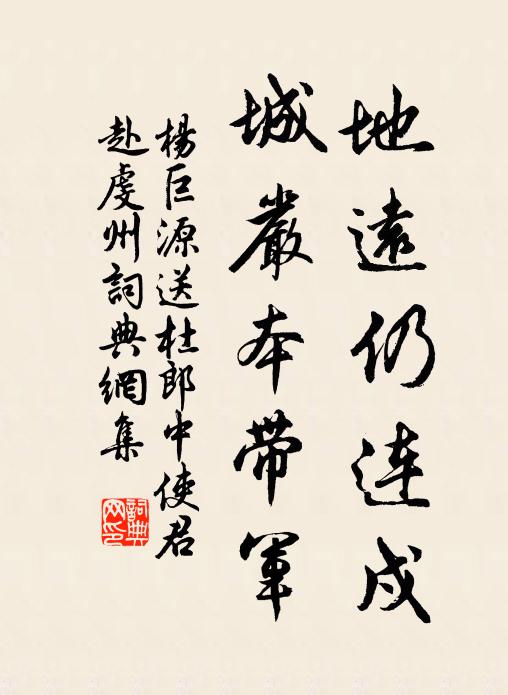 地遠仍連戍
城嚴本帶軍
楊巨源送杜郎中使君
赴虔州詞典網集
詞典
网印